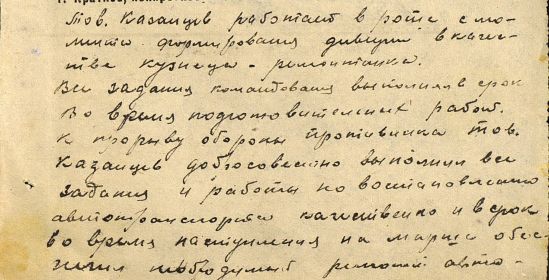 1. Краткое, конкретное
Тов. Казанцев работает в роте с мо-
мента формирования дивизии в качес-
тве кузнеца - ремонтника.
Все задания командования выполнял в срок
Во время подготовительных работ.
к прорыву обороны противника тов.
Казанцев добросовестно выполнил все
задания и работы по востановлению
автотранспорта качественно и в срок
во время наступления на марше обес-
печил необходимый ремонт авто-